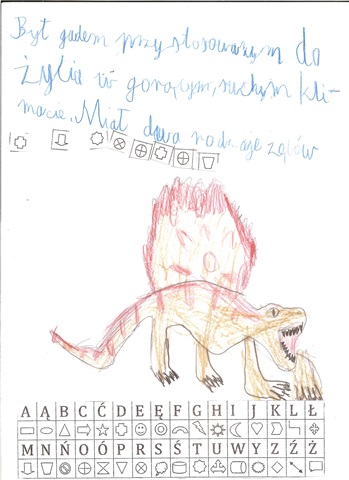 Był gadem przystosowanym do
życia w gorącym, suchym kli-
macie. Miał dwa rodzaje zębów
A Ą B C Ć D E Ę F G H I J K L Ł
M N Ń O Ó P R S Ś T U W Y Z Ź Ż